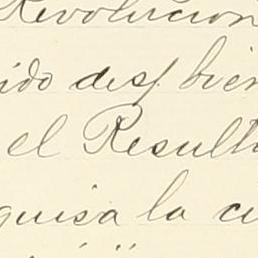 Revolucion
ido desf bien
el Result
quisa la cu